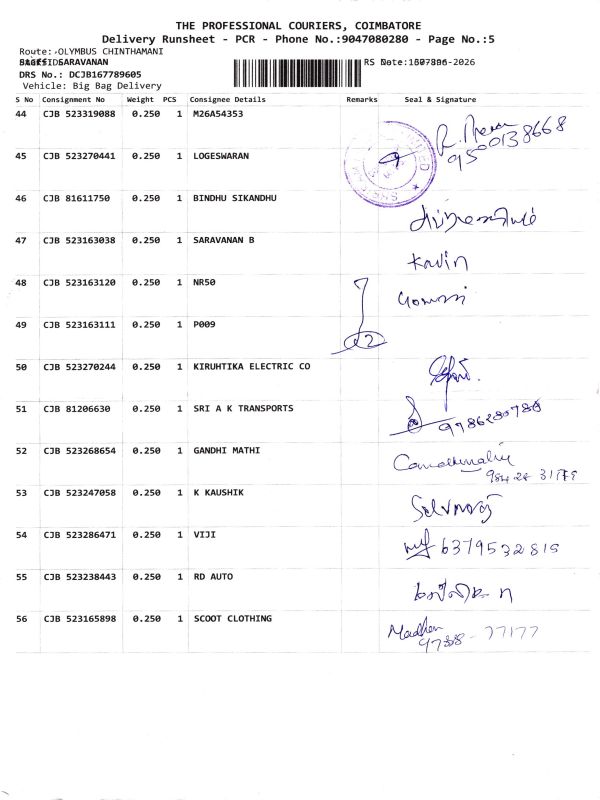 THE PROFESSIONAL COURIERS, COIMBATORE
Delivery Runsheet - PCR - Phone No.:9047080280 - Page No.:5
Route: OLYMBUS CHINTHAMANI
SARAVANAN
DRS No.: DCJB167789605
Vehicle: Big Bag Delivery
S No Consignment No Weight PCS Consignee Details Remarks Seal & Signature
44 CJB 523319088 0.250 1 M26A54353
9500138668
45 CJB 523270441 0.250 1 LOGESWARAN
46 CJB 81611750 0.250 1 BINDHU SIKANDHU
47 CJB 523163038 0.250 1 SARAVANAN B Kavin
48 CJB 523163120 0.250 1 NR50
49 CJB 523163111 0.250 1 P009 2
50 CJB 523270244 0.250 1 KIRUHTIKA ELECTRIC CO
51 CJB 81206630 0.250 1 SRI A K TRANSPORTS
52 CJB 523268654 0.250 1 GANDHI MATHI
53 CJB 523247058 0.250 1 K KAUSHIK
54 CJB 523286471 0.250 1 VIJI 6379532815
55 CJB 523238443 0.250 1 RD AUTO
56 CJB 523165898 0.250 1 SCOOT CLOTHING Madhan